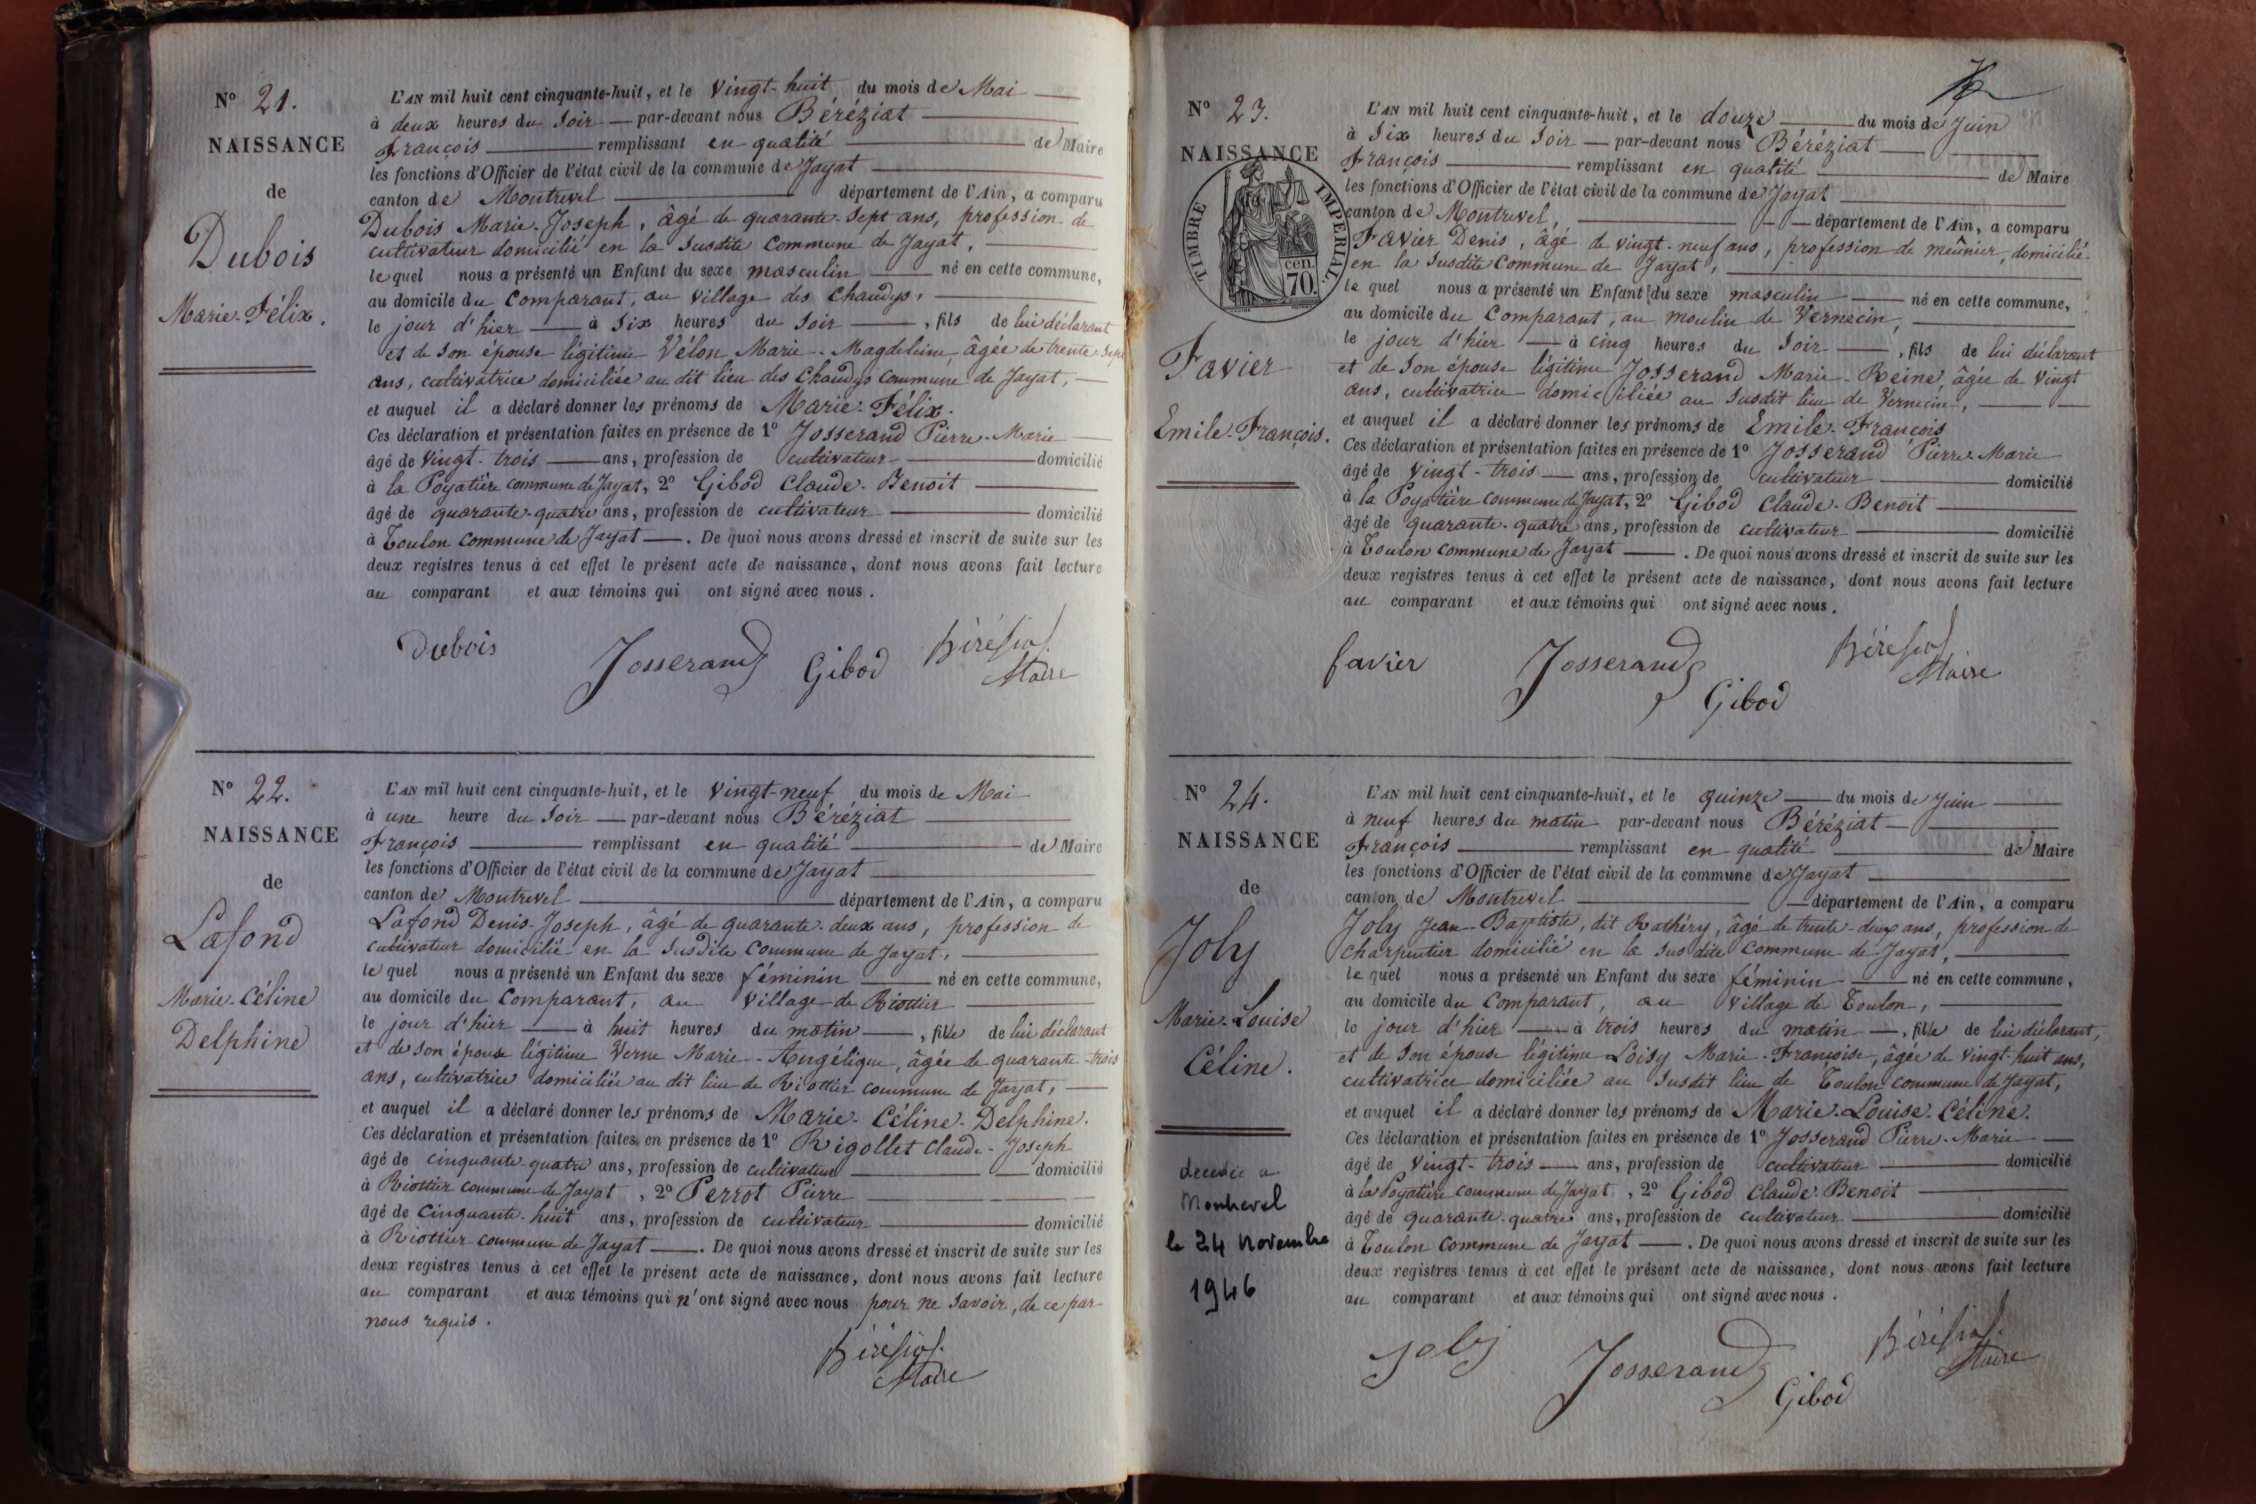 N° 21.
NAISSANCE
de
Dubois
Marie-Félix.
L'AN mil huit cent cinquante-huit, et le vingt-huit du mois de Mai
à deux heures du Soir par-devant nous Béréziat
François remplissant en qualité de Maire
les fonctions d'Officier de l'état civil de la commune de Jayat
canton de Montrevel département de l'Ain, a comparu
Dubois Marie-Joseph, âgé de quarante-sept ans, profession de
cultivateur domicilié en la susdite commune de Jayat,
le quel nous a présenté un Enfant du sexe masculin né en cette commune,
au domicile du comparant, au village des Chaudys,
le jour d'hier à six heures du Soir, fils de lui déclarant
et de son épouse légitime Vélon Marie-Magdeleine, âgée de trente sept
ans, cultivatrice domiciliée au dit lieu des Chaudys commune de Jayat,
et auquel il a déclaré donner les prénoms de Marie-Félix.
Ces déclaration et présentation faites en présence de 1° Josserand Pierre-Marie
âgé de vingt-trois ans, profession de cultivateur domicilié
à la Poyatière commune de Jayat, 2° Gibod Claude-Benoit
âgé de quarante-quatre ans, profession de cultivateur domicilié
à Toulon commune de Jayat. De quoi nous avons dressé et inscrit de suite sur les
deux registres tenus à cet effet le présent acte de naissance, dont nous avons fait lecture
au comparant et aux témoins qui ont signé avec nous.
Dubois Josserand Gibod Béréziat
Maire
N° 22.
NAISSANCE
de
Lafond
Marie-Céline
Delphine
L'AN mil huit cent cinquante-huit, et le vingt-neuf du mois de Mai
à une heure du Soir par-devant nous Béréziat
François remplissant en qualité de Maire
les fonctions d'Officier de l'état civil de la commune de Jayat
canton de Montrevel département de l'Ain, a comparu
Lafond Denis-Joseph, âgé de quarante-deux ans, profession de
cultivateur domicilié en la susdite commune de Jayat,
le quel nous a présenté un Enfant du sexe féminin né en cette commune,
au domicile du comparant, au village de Riottier
le jour d'hier à huit heures du matin, fille de lui déclarant
et de son épouse légitime Verne Marie-Angélique, âgée de quarante-trois
ans, cultivatrice domiciliée au dit lieu de Riottier commune de Jayat,
et auquel il a déclaré donner les prénoms de Marie-Céline-Delphine.
Ces déclaration et présentation faites en présence de 1° Rigollet Claude-Joseph
âgé de cinquante-quatre ans, profession de cultivateur domicilié
à Riottier commune de Jayat, 2° Perrot Pierre
âgé de cinquante-huit ans, profession de cultivateur domicilié
à Riottier commune de Jayat. De quoi nous avons dressé et inscrit de suite sur les
deux registres tenus à cet effet le présent acte de naissance, dont nous avons fait lecture
au comparant et aux témoins qui n'ont signé avec nous pour ne savoir, de ce par
nous requis.
Béréziat
Maire
N° 23.
NAISSANCE
TIMBRE IMPERIAL.
cen.
70.
Favier
Emile-François.
L'AN mil huit cent cinquante-huit, et le douze du mois de Juin
à six heures du Soir par-devant nous Béréziat
François remplissant en qualité de Maire
les fonctions d'Officier de l'état civil de la commune de Jayat
canton de Montrevel, département de l'Ain, a comparu
Favier Denis, âgé de vingt-neuf ans, profession de meûnier, domicilié
en la susdite commune de Jayat,
le quel nous a présenté un Enfant du sexe masculin né en cette commune,
au domicile du comparant, au moulin de Vernecin,
le jour d'hier à cinq heures du Soir, fils de lui déclarant
et de son épouse légitime Josserand Marie-Reine, âgée de vingt
ans, cultivatrice domiciliée au susdit lieu de Vernecin,
et auquel il a déclaré donner les prénoms de Emile-François
Ces déclaration et présentation faites en présence de 1° Josserand Pierre-Marie
âgé de vingt-trois ans, profession de cultivateur domicilié
à la Poyatière commune de Jayat, 2° Gibod Claude-Benoit
âgé de quarante-quatre ans, profession de cultivateur domicilié
à Toulon commune de Jayat. De quoi nous avons dressé et inscrit de suite sur les
deux registres tenus à cet effet le présent acte de naissance, dont nous avons fait lecture
au comparant et aux témoins qui ont signé avec nous.
favier Josserand Gibod Béréziat
Maire
N° 24.
NAISSANCE
de
Joly
Marie-Louise
Céline.
décédée a
Montrevel
le 24 novembre
1946
L'AN mil huit cent cinquante-huit, et le quinze du mois de Juin
à neuf heures du matin par-devant nous Béréziat
François remplissant en qualité de Maire
les fonctions d'Officier de l'état civil de la commune de Jayat
canton de Montrevel département de l'Ain, a comparu
Joly Jean-Baptiste, dit Rathéry, âgé de trente-deux ans, profession de
charpentier domicilié en la susdite commune de Jayat,
le quel nous a présenté un Enfant du sexe féminin né en cette commune,
au domicile du comparant, au village de Toulon,
le jour d'hier à trois heures du matin, fille de lui déclarant,
et de son épouse légitime Loisy Marie-Françoise, âgée de vingt-huit ans,
cultivatrice domiciliée au susdit lieu de Toulon commune de Jayat,
et auquel il a déclaré donner les prénoms de Marie-Louise-Céline.
Ces déclaration et présentation faites en présence de 1° Josserand Pierre-Marie
âgé de vingt-trois ans, profession de cultivateur domicilié
à la Poyatière commune de Jayat, 2° Gibod Claude-Benoit
âgé de quarante-quatre ans, profession de cultivateur domicilié
à Toulon commune de Jayat. De quoi nous avons dressé et inscrit de suite sur les
deux registres tenus à cet effet le présent acte de naissance, dont nous avons fait lecture
au comparant et aux témoins qui ont signé avec nous.
joly Josserand Gibod Béréziat
Maire